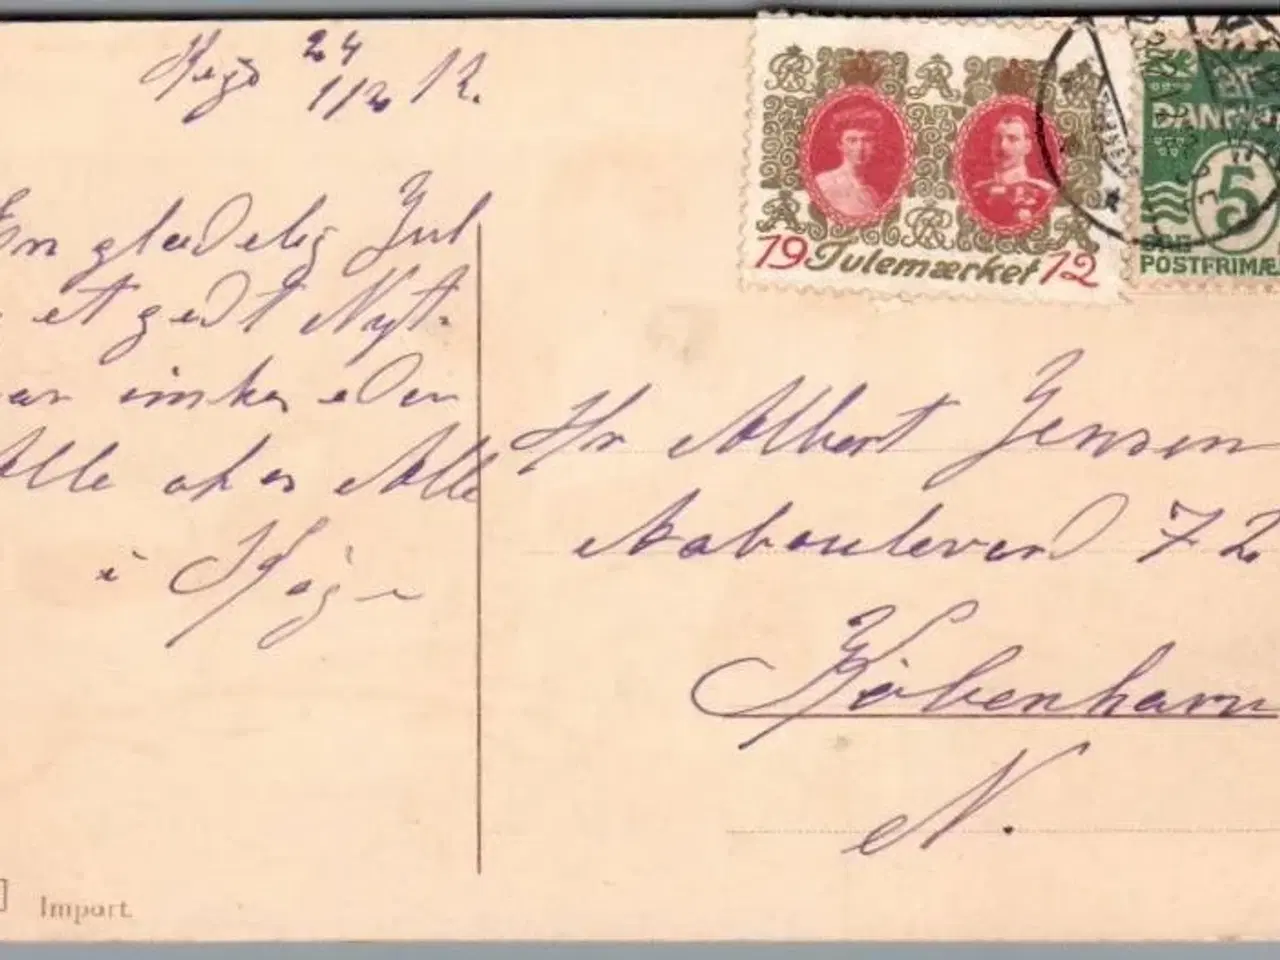 Køge 24/12 12.
En glædelig Jul
et godt Nyt-
aar ønskes eder
Alle af os Alle
i Køge
19 Julemærket 12
DANMARK
5
POSTFRIMÆ
Hr Albert Jensen
Aaboulevard 72
København
N.
Import.